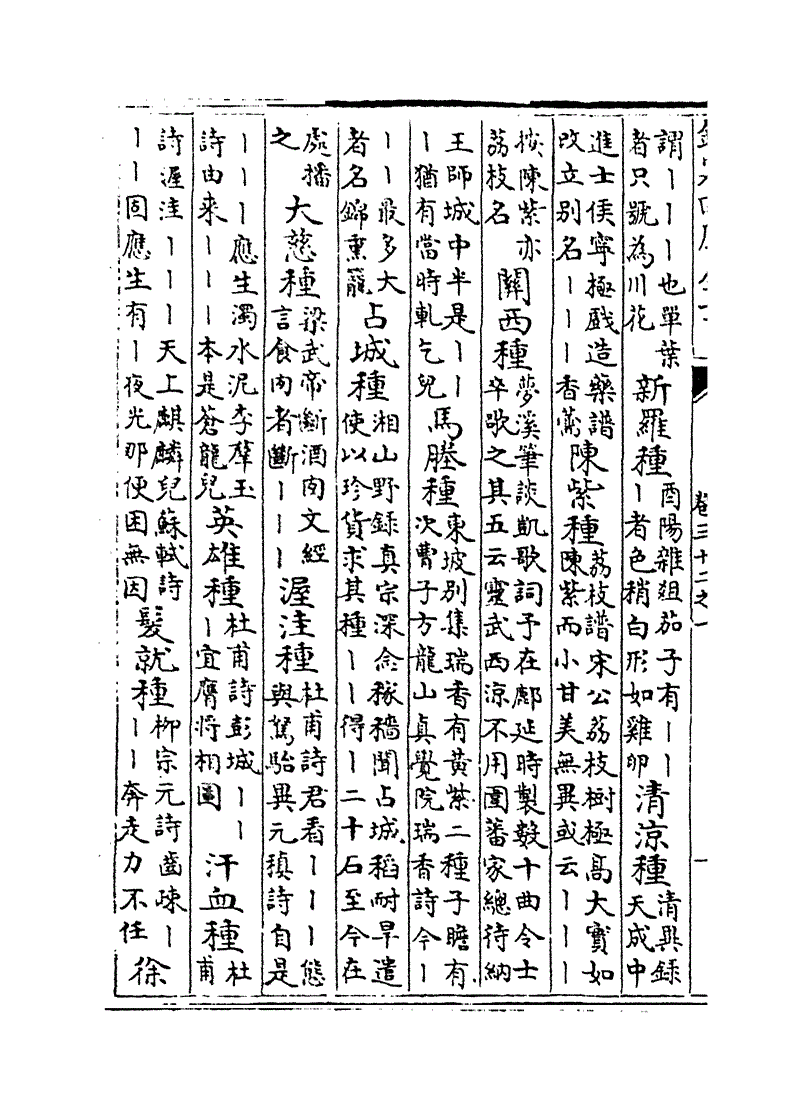 卷三十二之一
謂｜｜｜也單葉者只號為川花新羅種酉陽雜俎茄子有｜｜｜者色稍白形如雞卵清涼種清異錄天成中
進士侯寧極戲造藥譜改立別名｜｜｜香薷陳紫種荔枝譜宋公荔枝樹極高大實如陳紫而小甘美無異或云｜｜｜
按陳紫亦荔枝名關西種夢溪筆談凱歌詞予在鄜延時製數十曲令士卒歌之其五云靈武西涼不用圍蕃家總待納
王師城中半是｜｜｜猶有當時軋乞兒馬塍種東坡別集瑞香有黃紫二種子瞻有次曹子方龍山真覺院瑞香詩今｜
｜｜最多大者名錦熏籠占城種湘山野錄真宗深念稼穡聞占城稻耐旱遣使以珍貨求其種｜｜得｜二十石至今在
處播之大慈種梁武帝斷酒肉文經言食肉者斷｜｜｜渥洼種杜甫詩君看｜｜｜態與駑駘異元稹詩自是
｜｜｜應生濁水泥李羣玉詩由來｜｜｜本是蒼龍兒英雄種杜甫詩彭城｜｜｜宜膺將相圖汗血種杜甫
詩渥洼｜｜｜天上麒麟兒蘇軾詩｜｜固應生有｜夜光那使困無因髮就種柳宗元詩齒疎｜｜｜奔走力不任徐